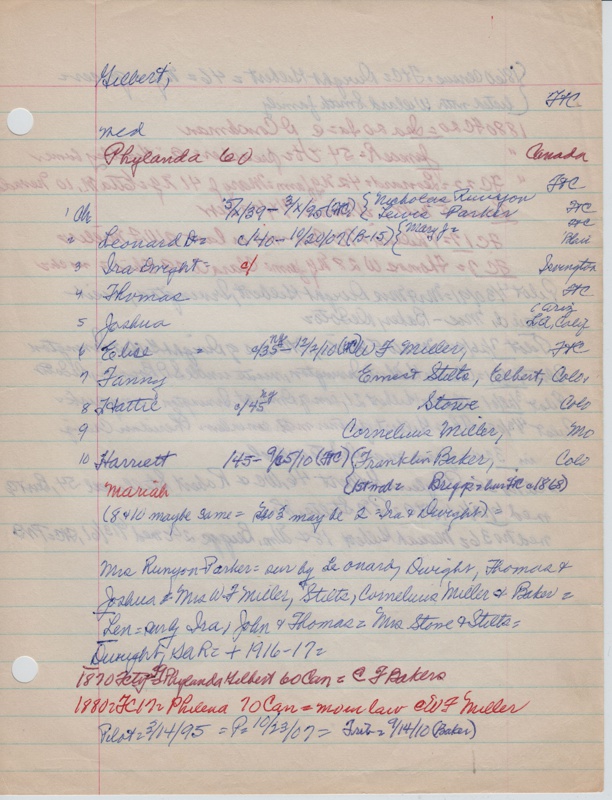 Gilbert,
med
Phylanda 60 Canada
1 Ch 5/x/39 - 3/x/95 (FtC) { Nicholas Runyon FtC
Lewis Parker FtC
2 Leonard D = c/40 - 10/20/07 (B-15) { Mary J =
3 Ira Dwight = Irvington
4 Thomas FtC
5 Joshua LA, Calif
6 Elise = c/35 NY - 12/2/10 (FtC) W F Miller, FtC
7 Fanny Ernest Stilts, Elbert, Colo,
8 Hattie c/45 NY Stowe Colo
9 Cornelius Miller, Mo
10 Harriett 145 - 9/05/10 (FtC) (Franklin Baker, Colo
Mariah (1st md = Briggs = burFtC c 1868)
(8 & 10 maybe same = 3 may be 2 = Ira & Dwight) =
Mrs Runyon Parker = sur by Leonard, Dwight, Thomas &
Joshua & Mrs W F Miller, Stilts, Cornelius Miller & Baker =
Len = sur by Ira, John & Thomas = Mrs Stowe & Stilts =
Dwight, DAR = + 1916-17 =
1870 Phylanda Gilbert 60 Can = C F Bakers
1880 = FC17 = Philena 70 Can = mom law c W F Miller
Pilot = 3/14/95 = P = 10/23/07 = Trib = 9/14/10 (Baker)